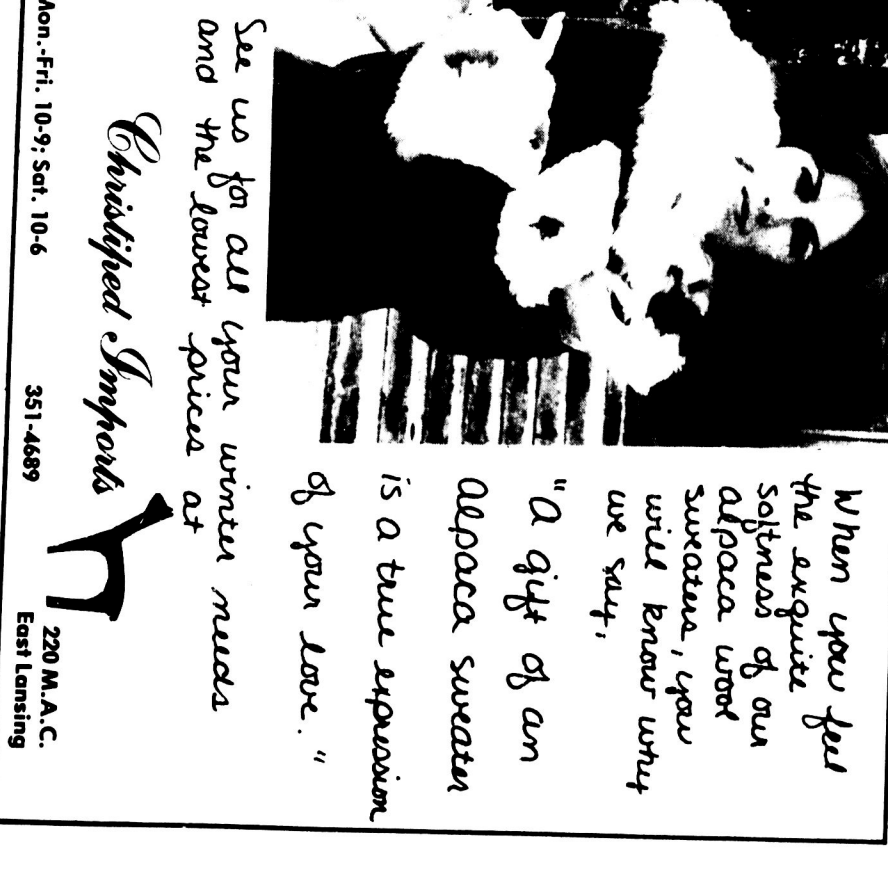 When you feel
the exquite
softness of our
alpaca wool
sweaters, you
will know why
we say,
"A gift of an
Alpaca sweater
is a true expression
of your love."
See us for all your winter needs
and the lowest prices at
Christified Imports
220 M.A.C.
Mon.-Fri. 10-9; Sat. 10-6 351-4689 East Lansing